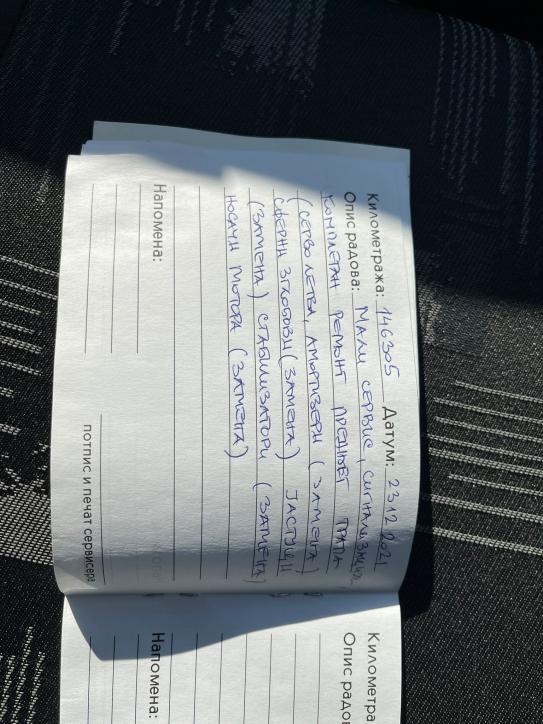 Километража: 146305 Датум: 23 12 2021
Опис радова: МАЛИ СЕРВИС, СИГНАЛИЗАЦИЈА
КОМПЛЕТАН РЕМОНТ ПРЕДЊЕГ ТРАПА
(СЕРВО ЛЕТВА, АМОРТИЗЕРИ (ЗАМЕНА)
СФЕРНИ ЗГЛОБОВИ (ЗАМЕНА) ЈАСТУЦИ
(ЗАМЕНА) СТАБИЛИЗАТОРИ (ЗАМЕНА)
НОСАЧИ МОТОРА (ЗАМЕНА)
Напомена:
потпис и печат сервисера
Километра
Опис радов
Напомена: